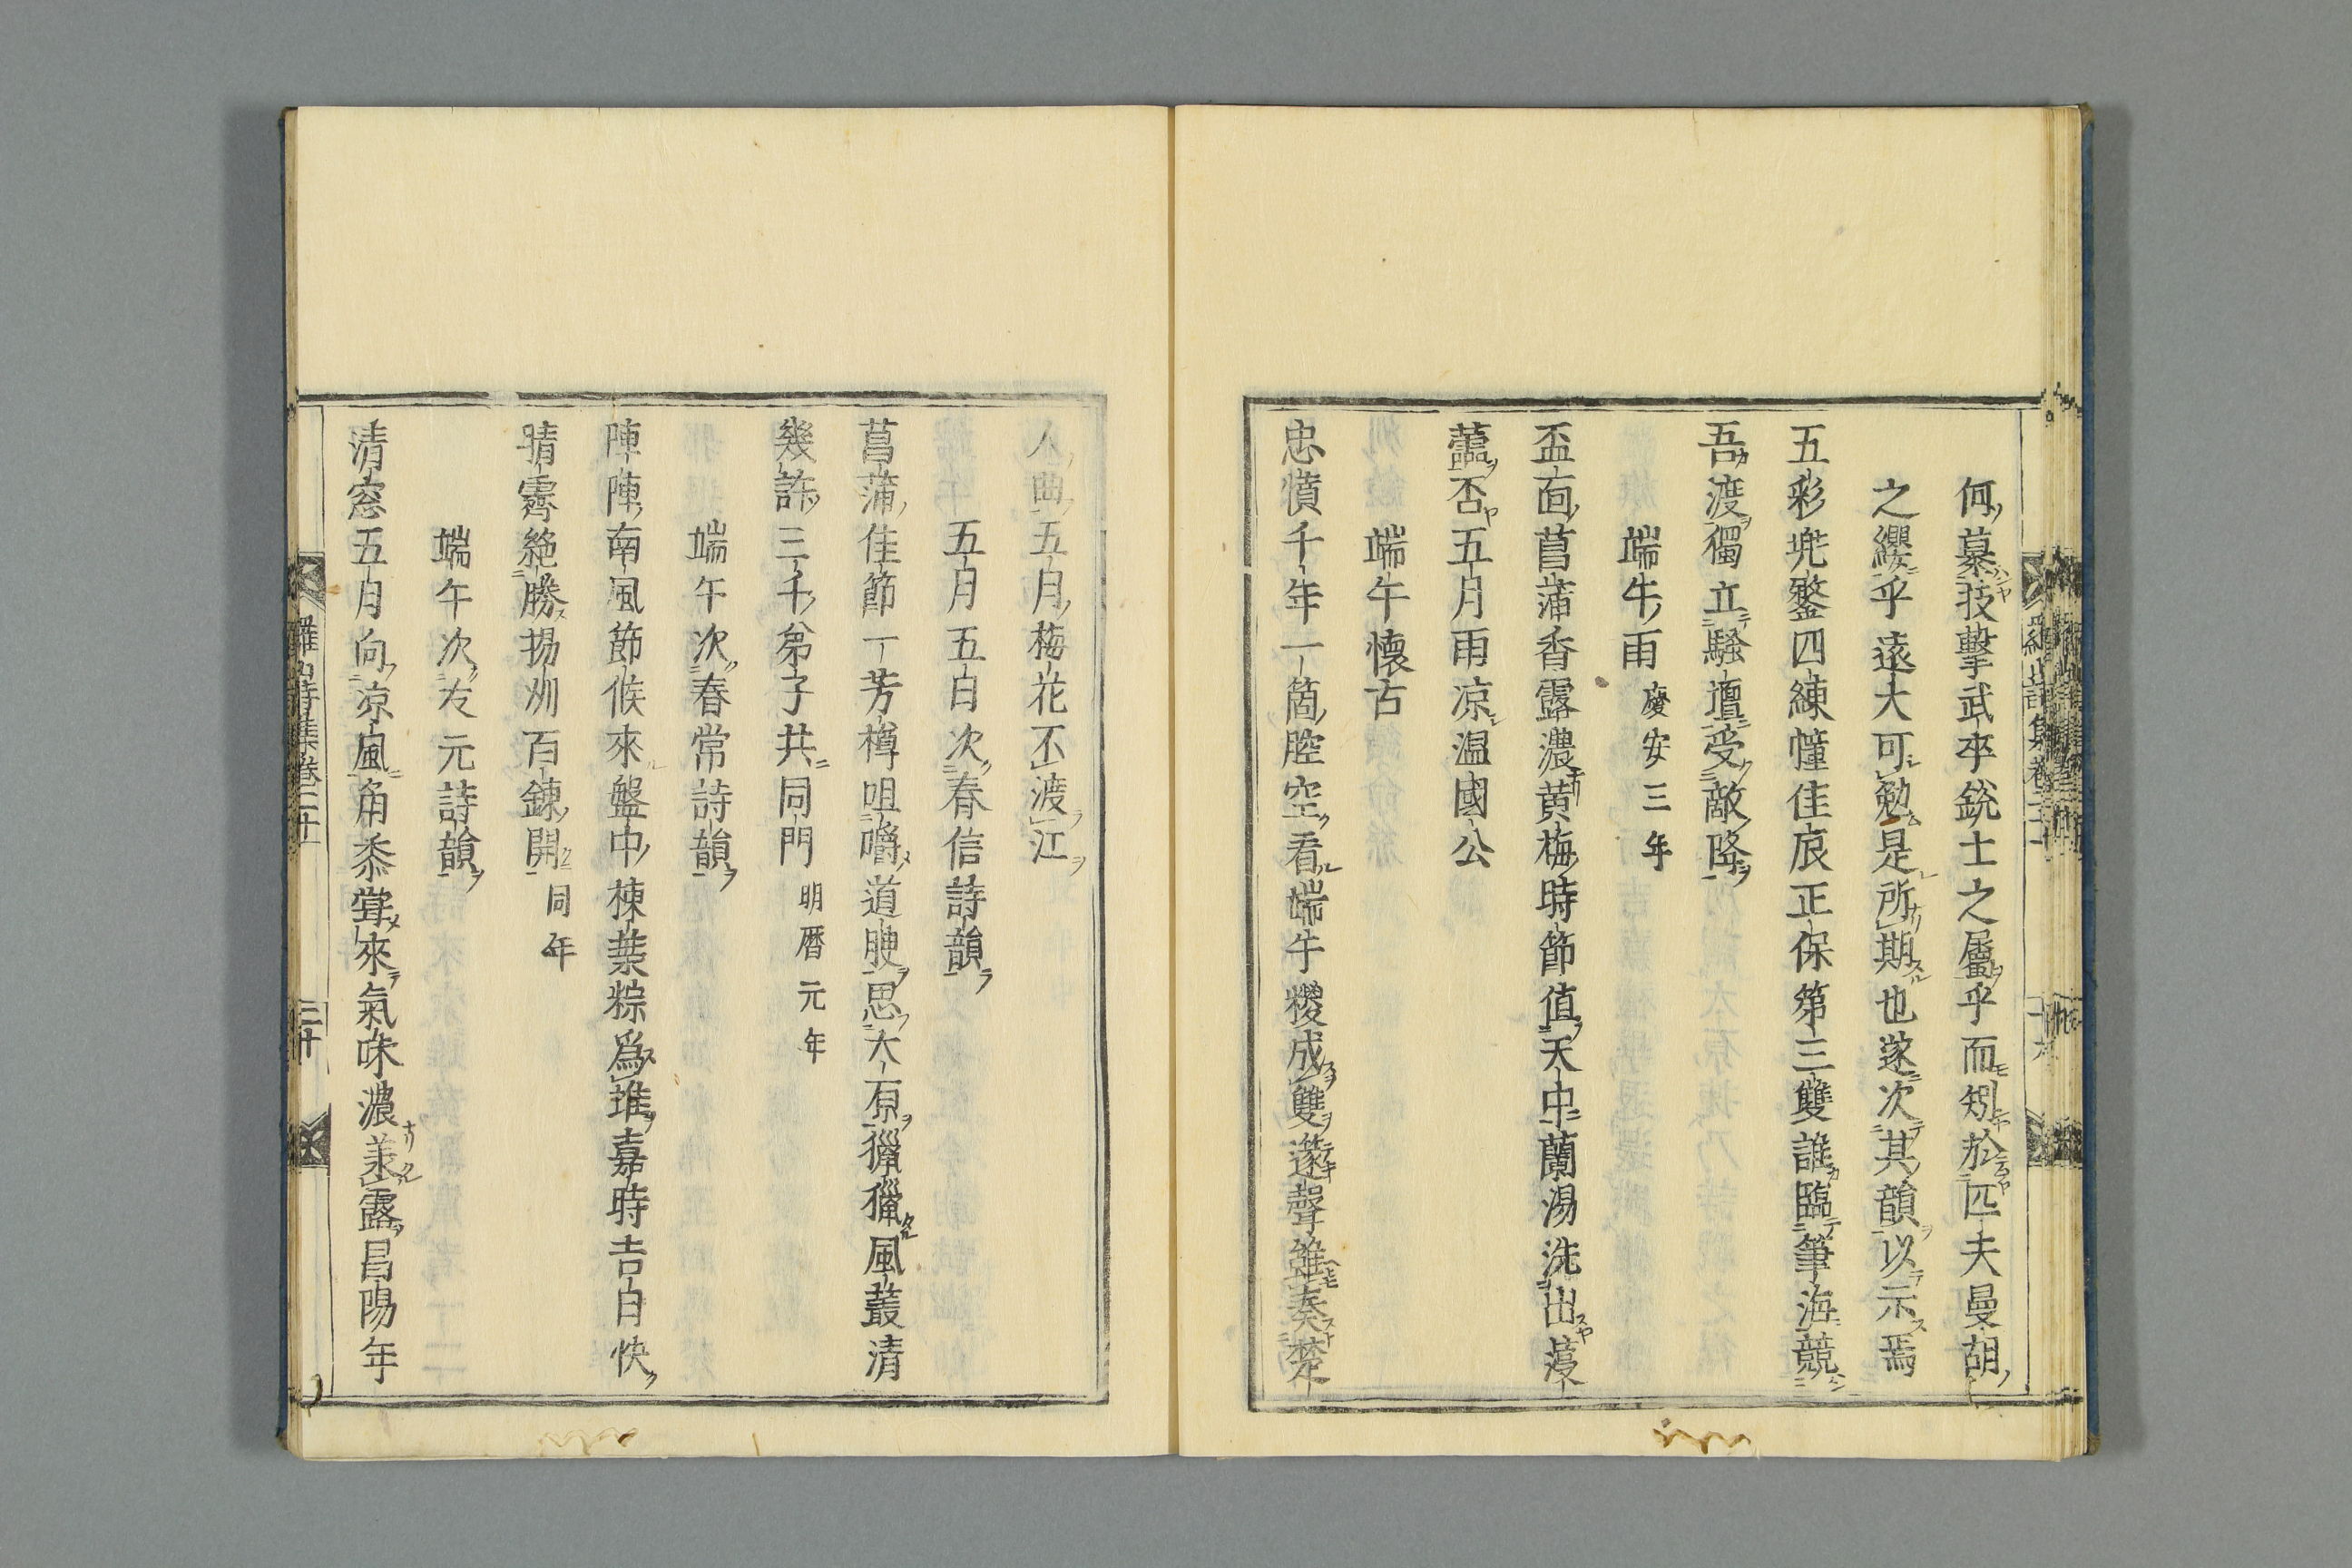 何募技擊武卒銳士之屬乎而矧於匹夫曼胡
之纓乎遠大可勉是所期也遂次其韻以示焉
五彩兜鍪四練幢佳辰正保第三雙誰臨筆海競
吾渡獨立騷壇受敵降
端午雨 慶安三年
盃面菖蒲香露濃黄梅時節值天中蘭湯洗出薓
蘁否五月雨凉温國公
端午懷古
忠憤千年一箇腔空看端午糉成雙邃聲雖奏楚
人曲五月梅花不渡江
五月五日次春信詩韻
菖蒲佳節一芳樽咀嚼道腴思大原獵獵風叢清
幾許三千弟子共同門 明暦元年
端午次春常詩韻
陣陣南風節候來盤中楝葉粽爲堆嘉時吉日快
晴霽絶勝揚洲百鍊開 同年
端午次友元詩韻
清窓五月向凉風角黍甞來氣味濃羕露昌陽年
羅山詩集卷二十
二十